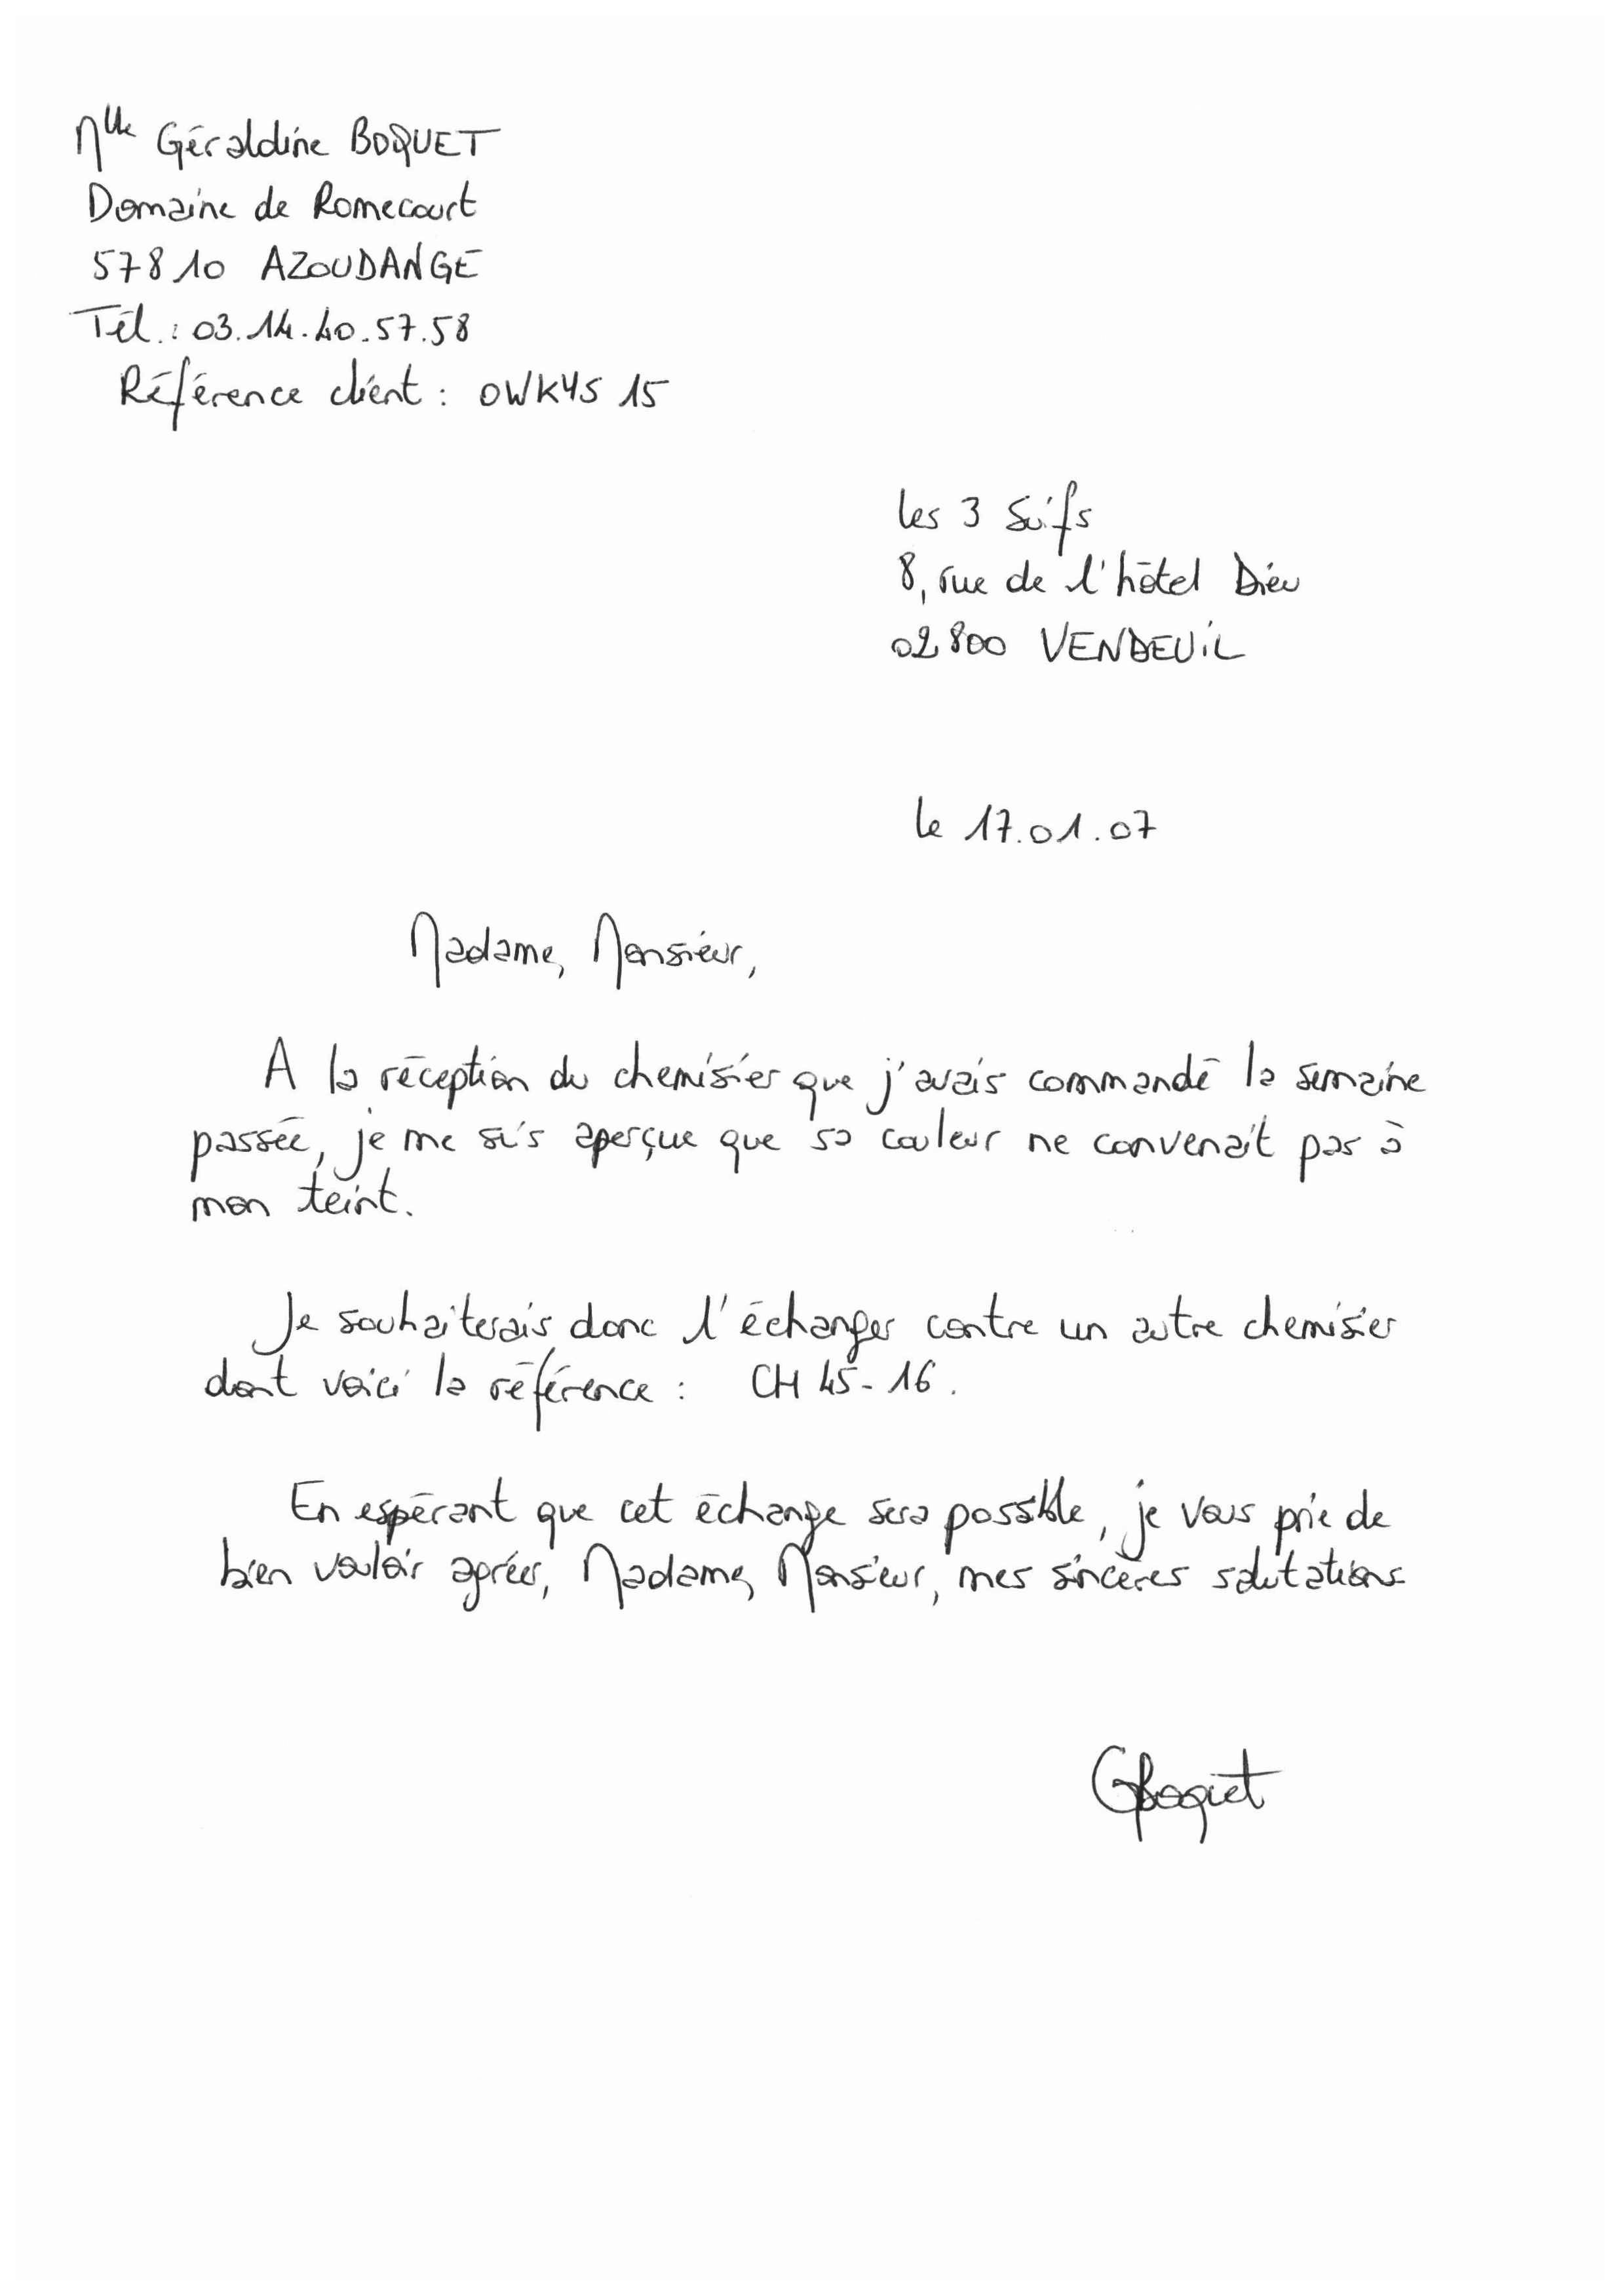 Mlle Géraldine BOQUET
Domaine de Romecourt
57810 AZOUDANGE
Tél.: 03.14.40.57.58
Référence client : OWKYS 15
les 3 Suifs
8, rue de l'hôtel Dieu
02800 VENDEUIL
le 17.01.07
Madame, Monsieur,
A la réception du chemisier que j'avais commandé la semaine
passée, je me suis aperçue que sa couleur ne convenait pas à
mon teint.
Je souhaiterais donc l'échanger contre un autre chemisier
dont voici la référence : CH 45-16.
En espérant que cet échange sera possible, je vous prie de
bien vouloir agréer, Madame, Monsieur, mes sincères salutations
GBoquet